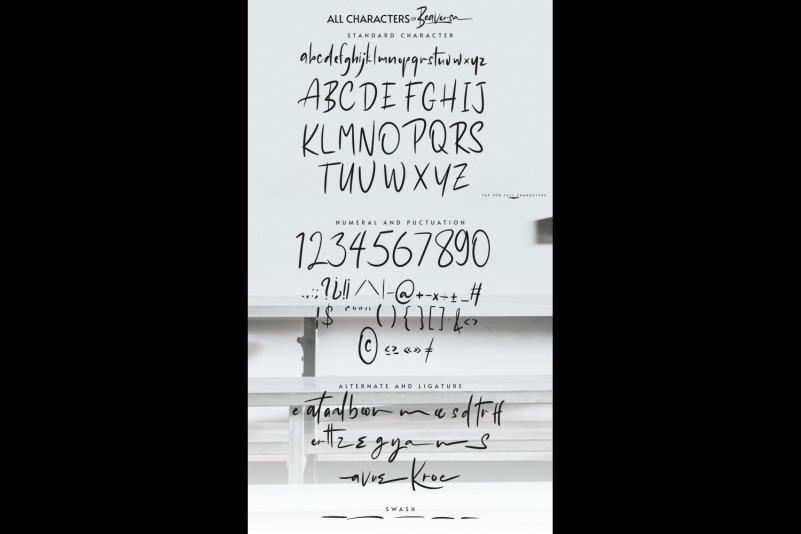 ALL CHARACTERS OF Beaversa
STANDARD CHARACTER
abcdefghijklmnopqrstuvwxyz
ABCDEFGHIJ
KLMNOPQRS
TUVWXYZ
TAP FOR FULL CHARACTERS
NUMERAL AND PUCTUATION
1234567890
.,:;?¿!¡/\|-@+-×÷±_#
¦$ ‘’“” (){}[] &<>
© ≤≥ «» ≠
ALTERNATE AND LIGATURE
SWASH